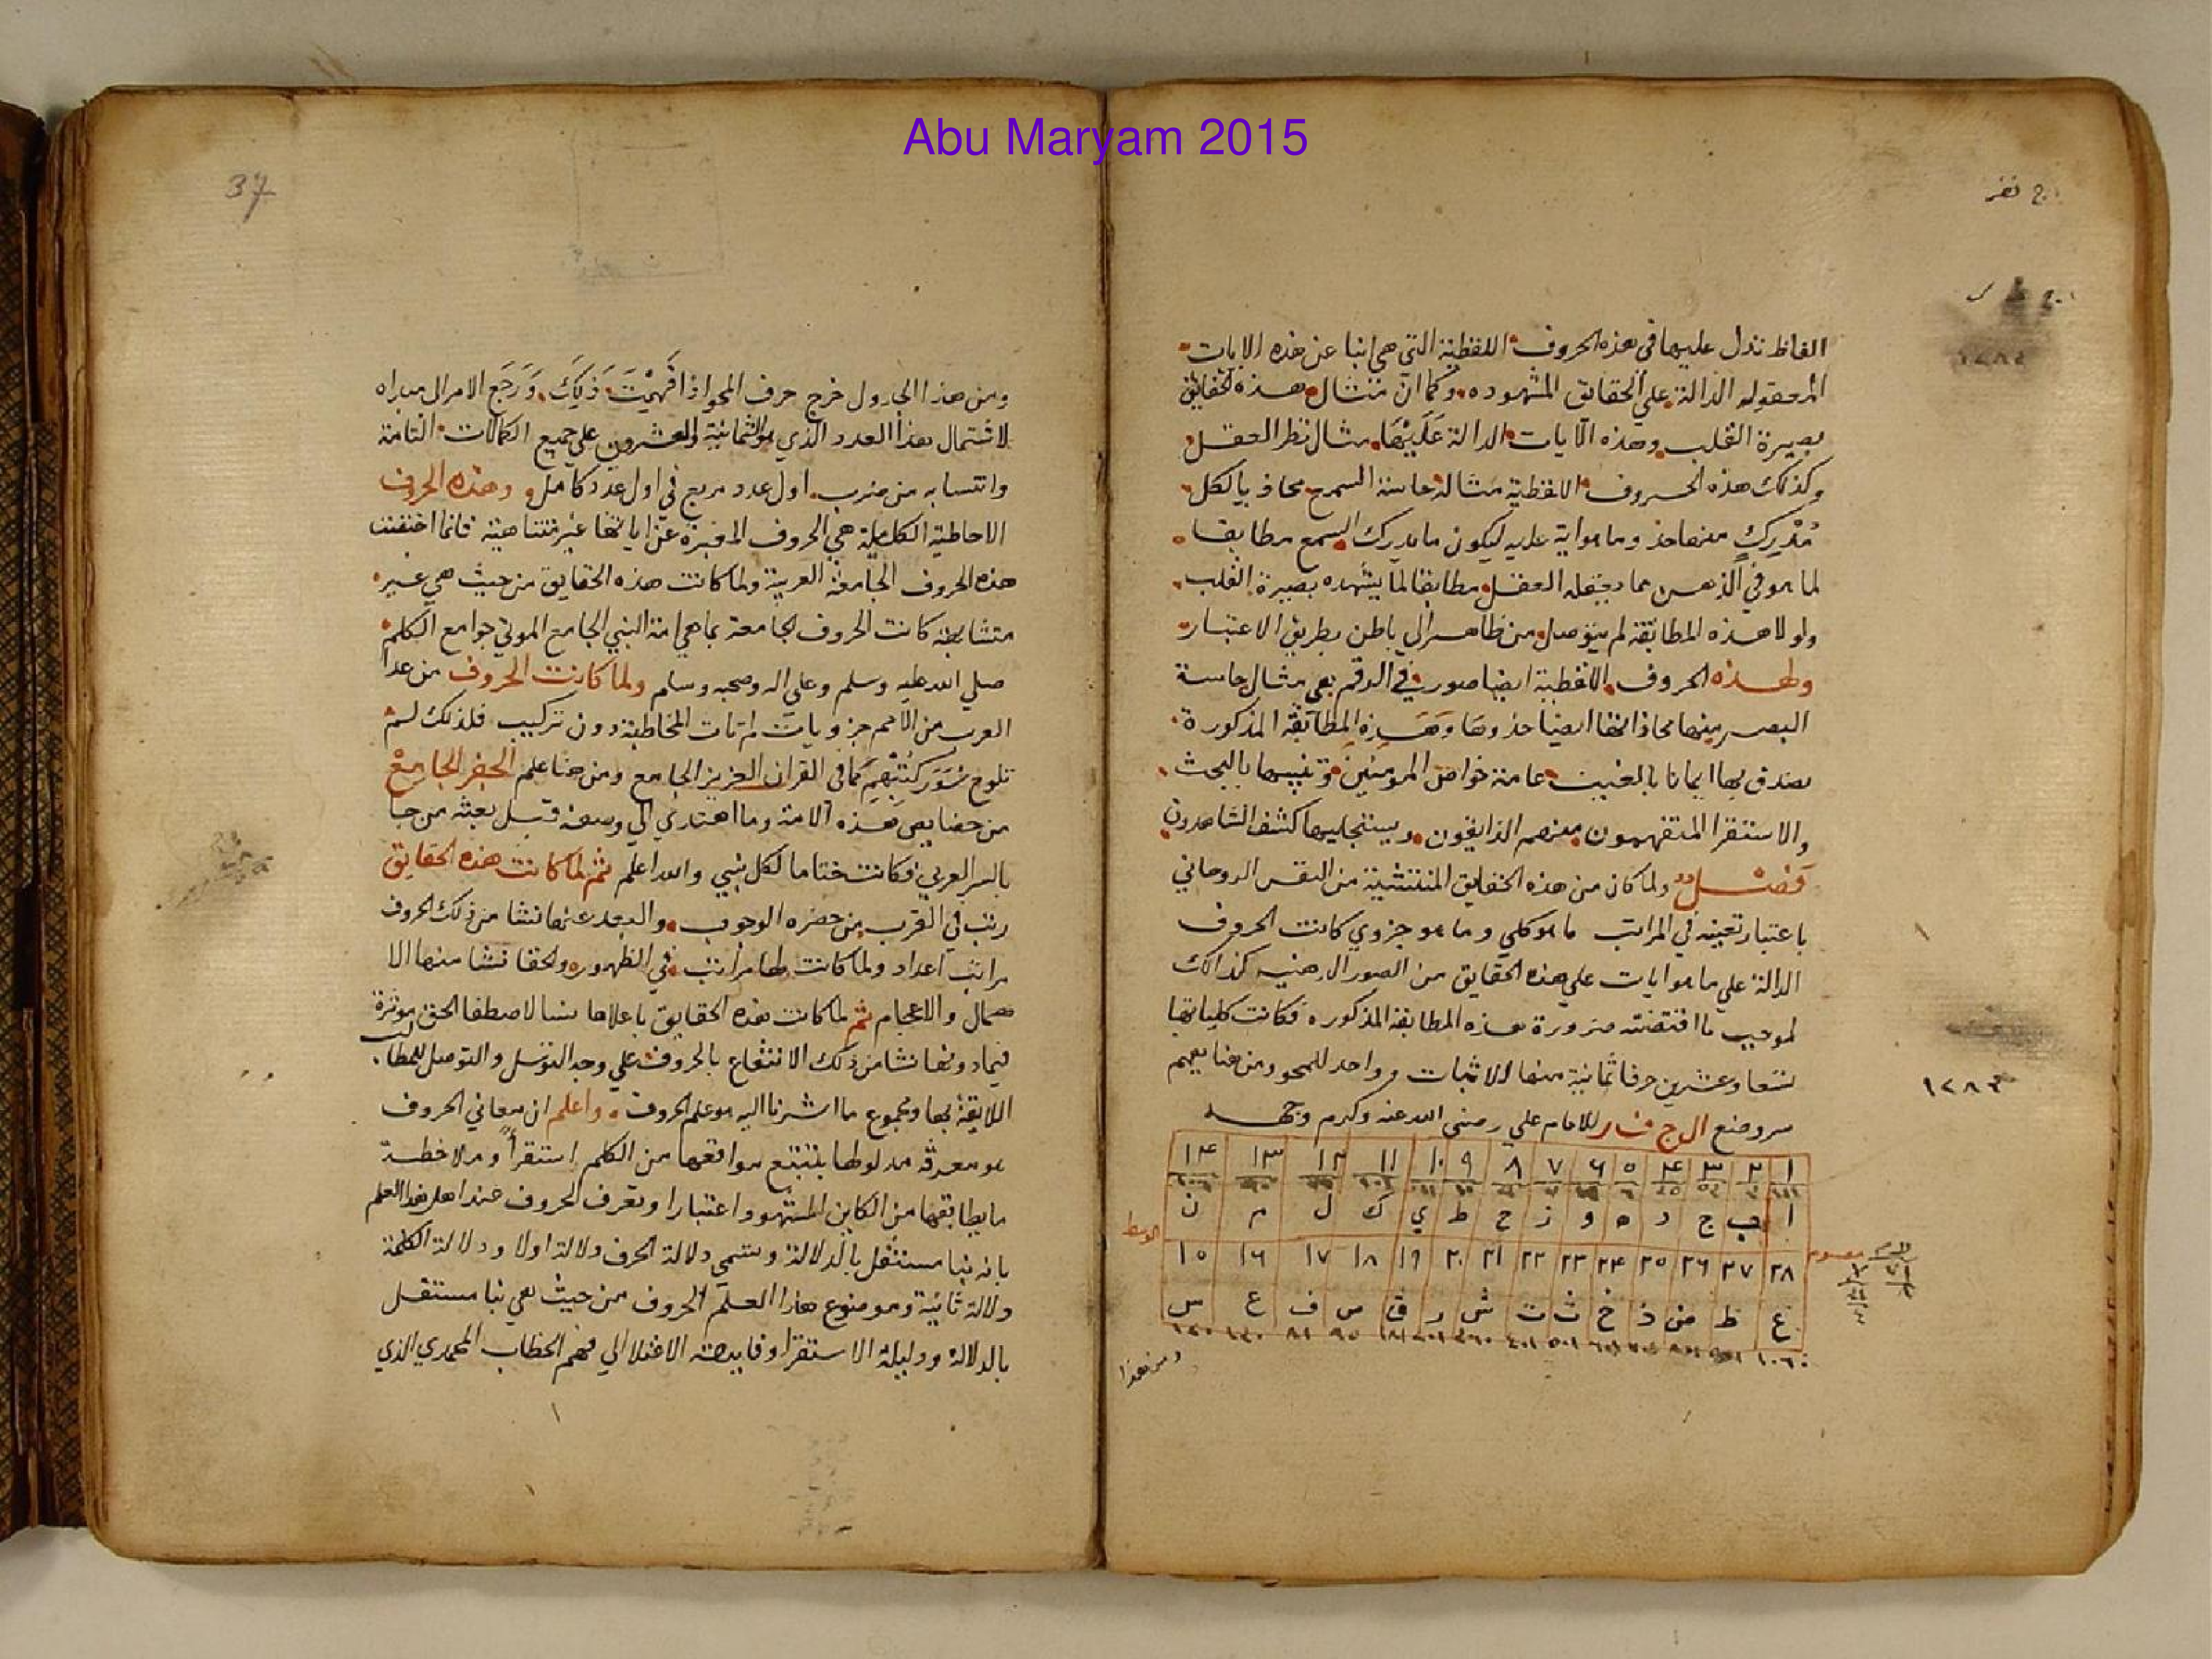 Abu Maryam 2015
الفاظ تدل عليها في هذه الحروف اللفظية التي هي انبا عن هذه الايات
المعقوله الدالة علي الحقائق المشهوده وكما ان مثال هذه الحقائق
بصيرة القلب وهذه الآيات الدالة عليها مثال نظر العقل
وكذلك هذه الحروف اللفظية مثالها حاسة السمع محاذ بالكل
مدرك منها حذو ما هو اية عليه ليكون ما يدرك السمع مطابقا
لما هو في الذهن مما يعقله العقل مطابقا لما يشهده بصيرة القلب
ولولا هذه المطابقة لم يتوصل من ظاهر الي باطن بطريق الاعتبار
ولهذه الحروف اللفظية ايضا صور في الرقم هي مثال حاسة
البصر منها محاذاتها ايضا حذوها وهذه المطابقة المذكورة
يصدق بها ايمانا بالغيب عامة خواص المؤمنين وتنبيها بالبحث
والاستقرا المتفهمون منهم الذايقون ويستجليها كشف الشاهدون
فصل ولما كان من هذه الحقايق المنتشية من النفس الروحاني
باعتبار تعينه في المراتب ما هو كلي وما هو جزوي كانت الحروف
الدالة علي ما هو ايات علي هذه الحقايق من الصور الذهنيه كذالك
لموجب ما اقتضته ضرورة هذه المطابقة المذكوره فكانت كلياتها
تسعا وعشرين حرفا ثمانية منها للاثبات وواحد للمحو ومن هنا يفهم
سر وضع ال ج ف ر للامام علي رضي الله عنه وكرم وجهه
١ ٢ ٣ ٤ ٥ ٦ ٧ ٨ ٩ ١٠ ١١ ١٢ ١٣ ١٤
ا ب ج د ه و ز ح ط ي ك ل م ن
٢٨ ٢٧ ٢٦ ٢٥ ٢٤ ٢٣ ٢٢ ٢١ ٢٠ ١٩ ١٨ ١٧ ١٦ ١٥
غ ظ ض ذ خ ث ت ش ر ق ص ف ع س
ومن هذا
١٢٨٣
37
ومن هذا الجدول خرج حرف المحو اذا فهمت ذلك ورجع الامر الي مبداه
لاشتمال هذا العدد الذي هو الثمانية والعشرون علي جميع الكمالات التامة
وانتسابه من ضرب اول عدد مربع في اول عدد كامل وهذه الحروف
الاحاطية الكاملة هي الحروف المخبرة عن ايات غير متناهية فانما اختفت
هذه الحروف الجامعة العربية ولما كانت هذه الحقايق من حيث هي غير
متشابهة كانت الحروف الجامعة بما هي امة النبي الجامع الموتي جوامع الكلم
صلي الله عليه وسلم وعلي اله وصحبه وسلم ولما كانت الحروف من عدا
العرب من الامم جزويات لم تات المخاطبة دون تركيب فلذلك لم
تلوح سور كتبهم كما في القران العزيز الجامع ومن هنا علم الجفر الجامع
من خصايص هذه الامة وما اهتدي الي وصفه قبل بعثه من جا
بالسر العربي فكانت ختاما لكل نبي والله اعلم ثم لما كانت هذه الحقايق
رتب في القرب من حضره الوجوب والبعد عنها نشا من ذلك الحروف
مراتب اعداد ولما كانت لها مراتب في الظهور والخفا نشا منها الا
همال والاعجام ثم لما كانت هذه الحقايق باعلاها شا لاصطفا الحق موثرة
فيما دونها نشا من ذلك الانتفاع بالحروف علي وجه التوسل والتوصل للمطالب
اللايقة بها ومجموع ما اشرنا اليه هو علم الحروف واعلم ان معاني الحروف
هو معرفة مدلولها بتتبع مواقعها من الكلم استقرأ وملاحظة
ما يطابقها من الكاين المشهود اعتبارا وتعرف الحروف عند اهل هذا العلم
بانه نبا مستقل بالدلالة وتسمي دلالة الحرف دلالة اولا ودلالة الكلمة
دلالة ثانية وموضوع هذا العلم الحروف من حيث هي نبا مستقل
بالدلالة ودليله الاستقرا وفايدته الاعتلا الي فهم الخطاب المحمدي الذي